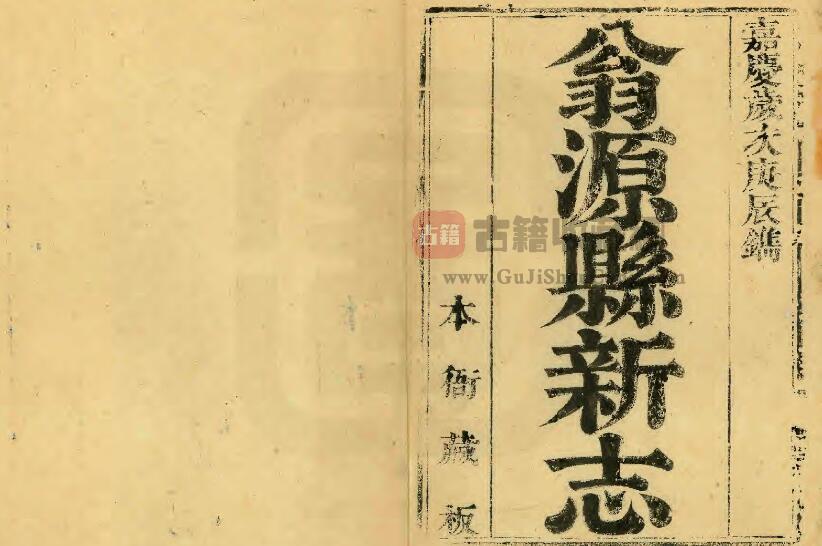 嘉慶歲次庚辰鐫
翁源縣新志
本衙藏板
古籍
古籍收
www.GuJiSh